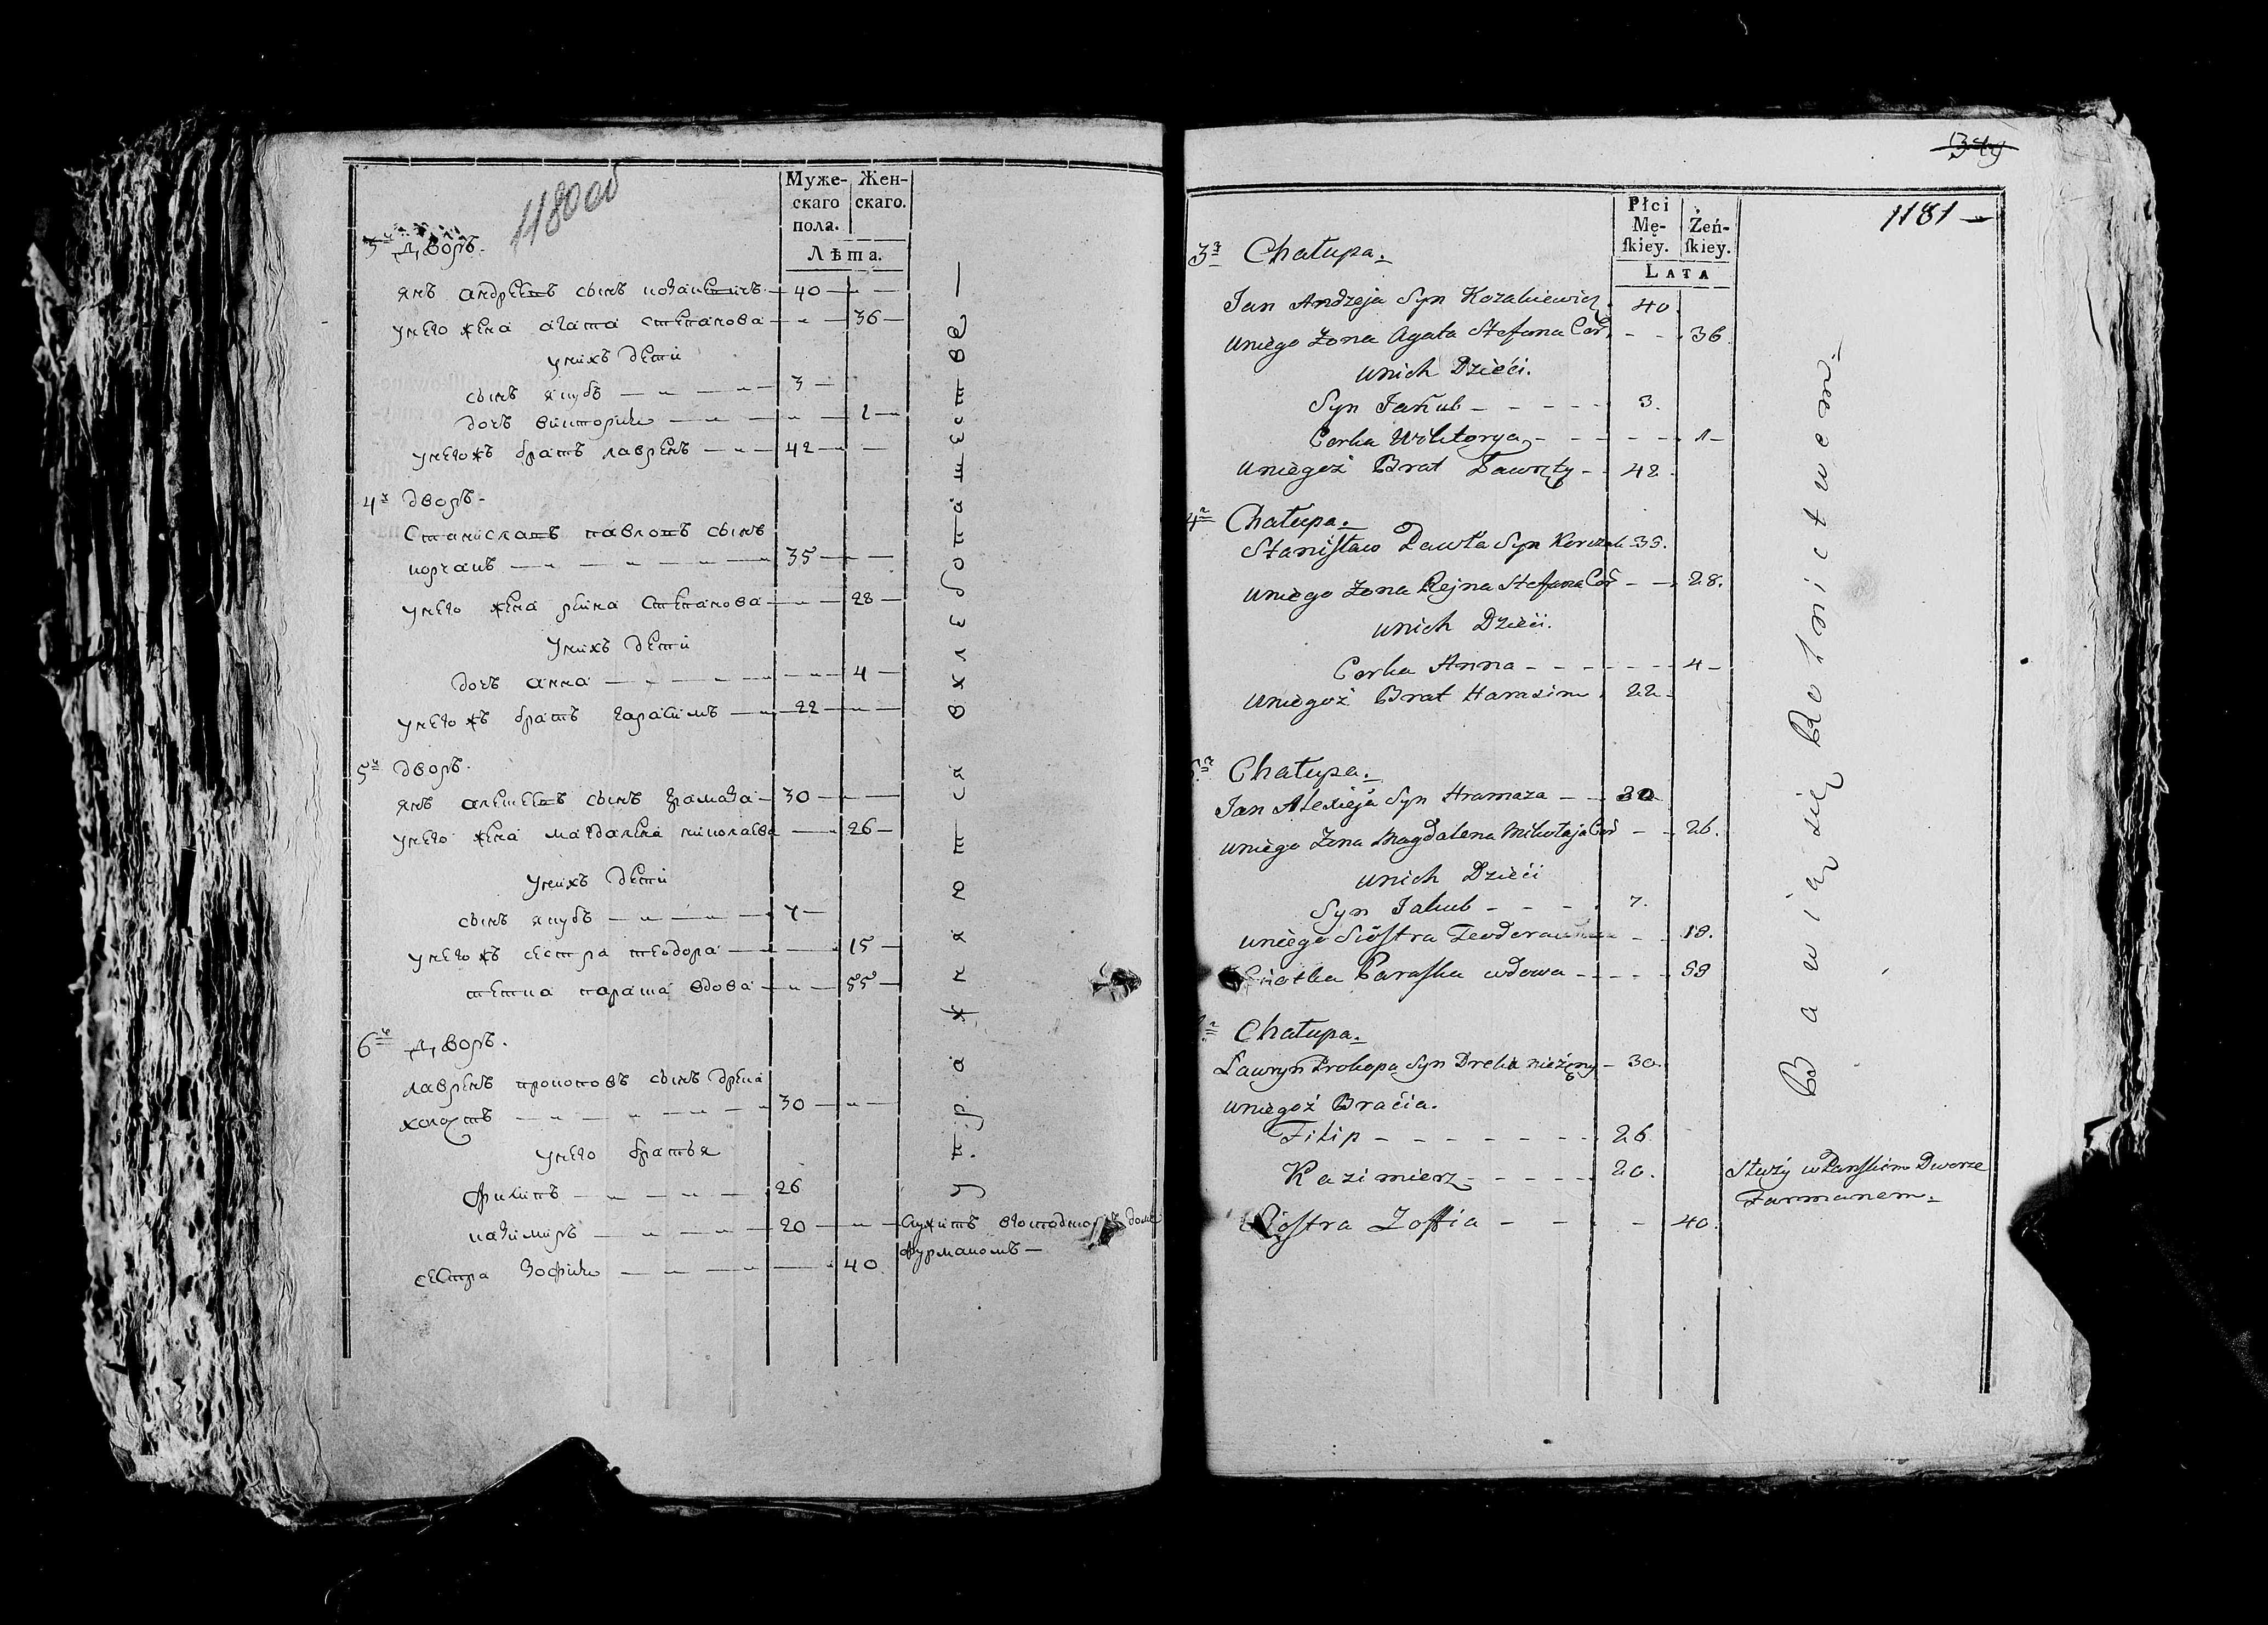 1180 об
Муже-
скаго
пола.
Жен-
скаго.
Лѣта.
3й дворъ.
янъ андреевъ сынъ козакевичъ — 40
унего жена агата степанова — 36
унихъ дети
сынъ якубъ — 3
дочъ викторія — 1
унегожъ братъ лавренъ — 42
4й дворъ.
Станиславъ павловъ сынъ
корчакъ — 35
унего жена рейна Степанова — 28
Унихъ дети
дочъ анна — 4
унегожъ братъ гарасимъ — 22
5й дворъ.
янъ алексеевъ сынъ грамаза — 30
унего жена магдалена николаева — 26
Унихъ дети
сынъ якубъ — 7
унегожъ сестра теодора — 15
тетка параша вдова — 55
6й дворъ.
лавренъ прокоповъ сынъ дрека
холостъ — 30
унего братья
филипъ — 26
казимиръ — 20 — Служитъ вгосподскомъ доме
фурманомъ —
сестра зофия — 40
упражняются вхлебопашестве —
1181 —
Płci
Mę-
ſkiey.
Żeń-
ſkiey.
LATA
3a Chałupa.
Jan Andzeja Syn Kozakiewicz 40.
uniego Żona Agata Stefana Cor. - - 36.
unich Dzieći.
Syn Jakub - - - - 3.
Corka Wiktorya - - - - 1 -
uniegoż Brat Ławrity - 42.
4a Chałupa.
Staniſław Pawła Syn Korczak 35.
uniego Żona Rejna Stefana Cor - - 28.
unich Dzieći.
Corka Anna - - - - - 4 -
uniegoż Brat Harasim 22.
5a Chałupa.
Jan Alexieja Syn Hramaza - - 30
uniego Żona Magdalena Mikołaja Cor - - 26.
unich Dzieći
Syn Jakub - - - 7.
uniego Sioſtra Teodora - -
Ciotka Paraſka wdowa - - - -
Chałupa.
Ławryn Prokopa Syn Dreka nieżęny - 30.
uniegoż Braćia.
Filip - - - - - - - 26
Kazimierz - - - - - 20. Służy w Pańſkim Dworze
Farmanem.
Sioſtra Zoffia - - - - 40.
Bawią się Rolnictwem.